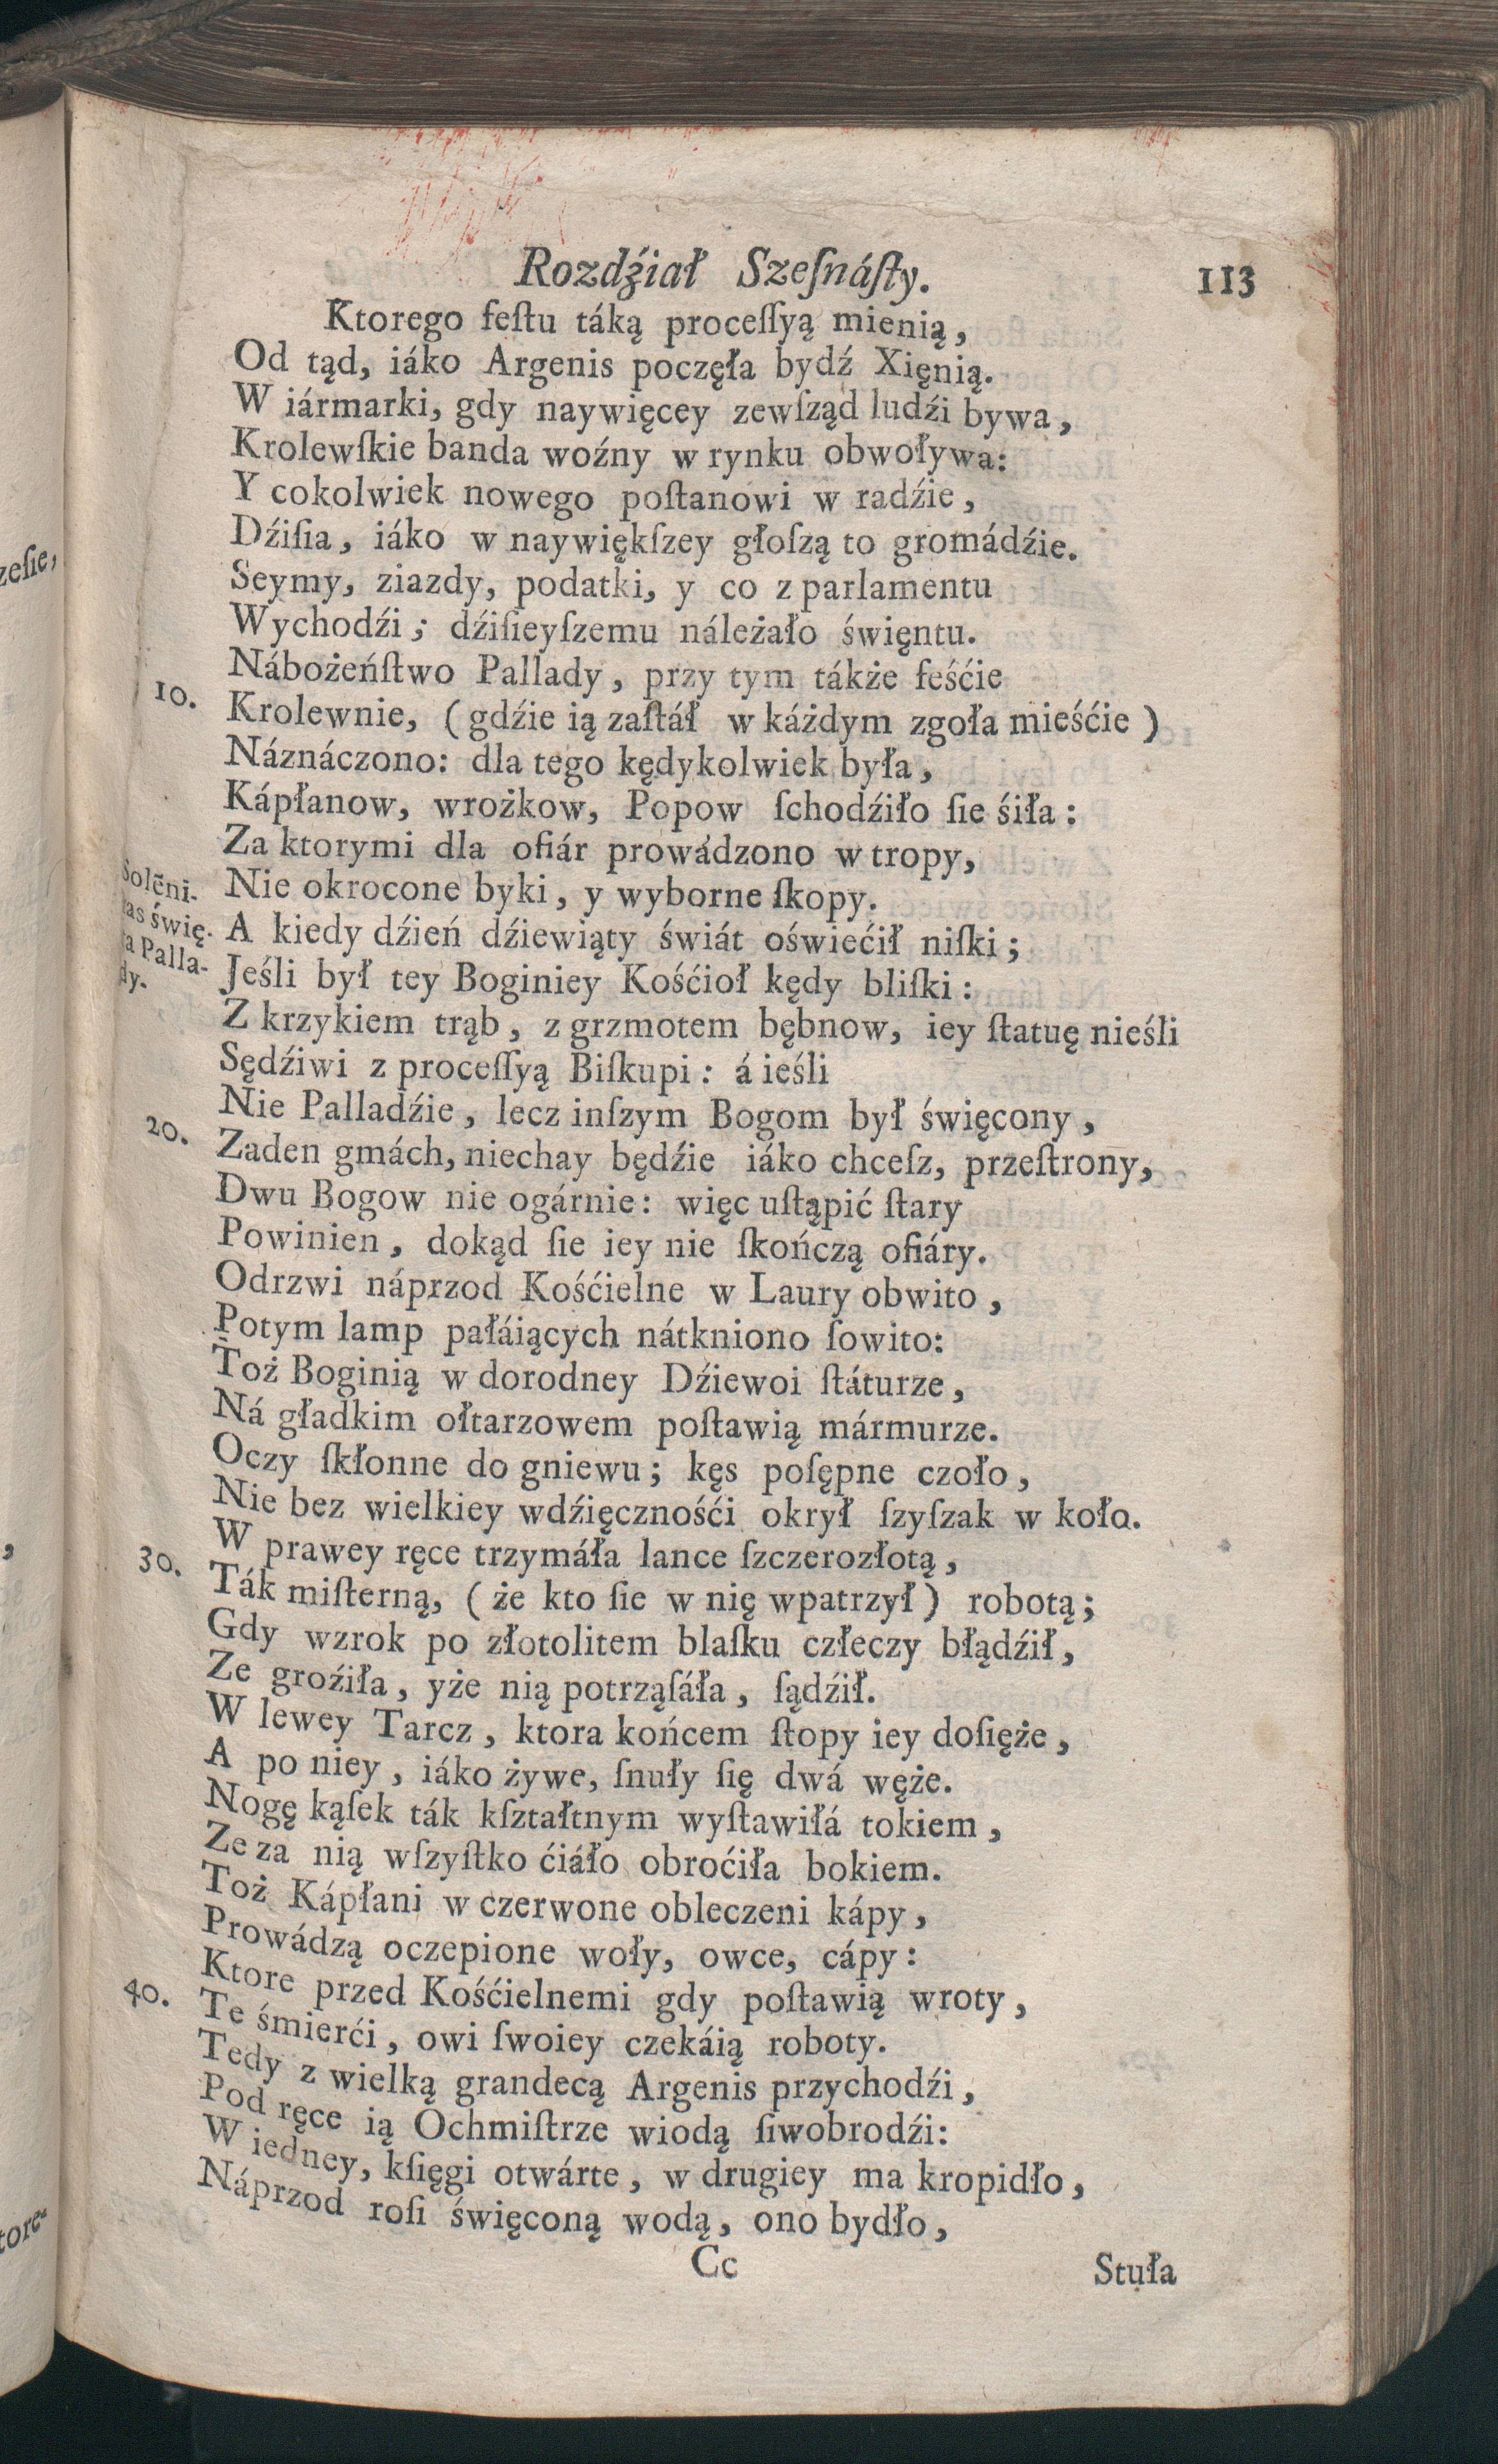 Rozdźiał Szeſnáſty. 113
Ktorego feſtu táką proceſſyą mienią,
Od tąd, iáko Argenis poczęła bydź Xięnią.
W iármarki, gdy naywięcey zewſząd ludźi bywa,
Krolewſkie banda woźny w rynku obwoływa:
Y cokolwiek nowego poſtanowi w radźie,
Dźiſia, iáko w naywiękſzey głoſzą to gromádźie.
Seymy, ziazdy, podatki, y co z parlamentu
Wychodźi; dźiſieyſzemu náleżało święntu.
Nábożeńſtwo Pallady, przy tym tákże feśćie
10. Krolewnie, (gdźie ią zaſtáł w káżdym zgoła mieśćie)
Náznáczono: dla tego kędykolwiek była,
Kápłanow, wrożkow, Popow ſchodźiło ſie śiła:
Za ktorymi dla ofiár prowádzono w tropy,
Nie okrocone byki, y wyborne ſkopy.
A kiedy dźień dźiewiąty świát oświećił niſki;
Jeśli był tey Boginiey Kośćioł kędy bliſki:
Z krzykiem trąb, z grzmotem bębnow, iey ſtatuę nieśli
Sędźiwi z proceſſyą Biſkupi: á ieśli
Nie Palladźie, lecz inſzym Bogom był święcony,
20. Zaden gmách, niechay będźie iáko chceſz, przeſtrony,
Dwu Bogow nie ogárnie: więc uſtąpić ſtary
Powinien, dokąd ſie iey nie ſkończą ofiáry.
Odrzwi náprzod Kośćielne w Laury obwito,
Potym lamp pałáiących nátkniono ſowito:
Toż Boginią w dorodney Dźiewoi ſtáturze,
Ná gładkim ołtarzowem poſtawią mármurze.
Oczy ſkłonne do gniewu; kęs poſępne czoło,
Nie bez wielkiey wdźięcznośći okrył ſzyſzak w koło.
W prawey ręce trzymáła lance ſzczerozłotą,
30. Ták miſterną, (że kto ſie w nię wpatrzył) robotą;
Gdy wzrok po złotolitem blaſku człeczy błądźił,
Ze groźiła, yże nią potrząſáła, ſądźił.
W lewey Tarcz, ktora końcem ſtopy iey doſięże,
A po niey, iáko żywe, ſnuły ſię dwá węże.
Nogę kąſek ták kſztałtnym wyſtawiłá tokiem,
Ze za nią wſzyſtko ćiáło obroćiła bokiem.
Toż Kápłani w czerwone obleczeni kápy,
Prowádzą oczepione woły, owce, cápy:
Ktore przed Kośćielnemi gdy poſtawią wroty,
40. Te śmierći, owi ſwoiey czekáią roboty.
Tedy z wielką grandecą Argenis przychodźi,
Pod ręce ią Ochmiſtrze wiodą ſiwobrodźi:
W iedney, kſięgi otwárte, w drugiey ma kropidło,
Náprzod roſi święconą wodą, ono bydło,
Cc Stuła
Solēni-
tas świę-
ta Palla-
dy.
zeſie,
tore-